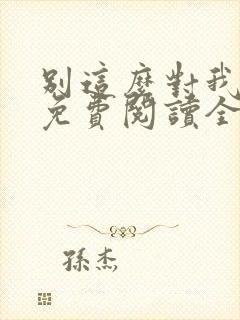 別這麼對我
免費閱讀全
孫杰